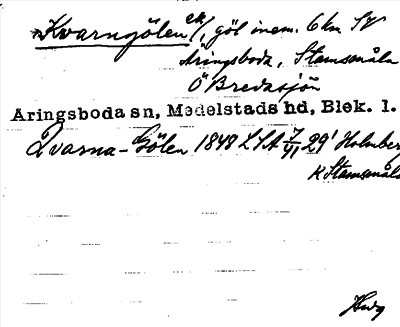 Kvarngölen ek/, göl inom. 6 km. SV
Aringsboda, Stamsmåla
Ö Bredasjön
Aringsboda sn, Medelstads hd, Blek. l.
Qvarna-Gölen 1848 LSA 7/VI 29' Holmberg
K Stamsmåla